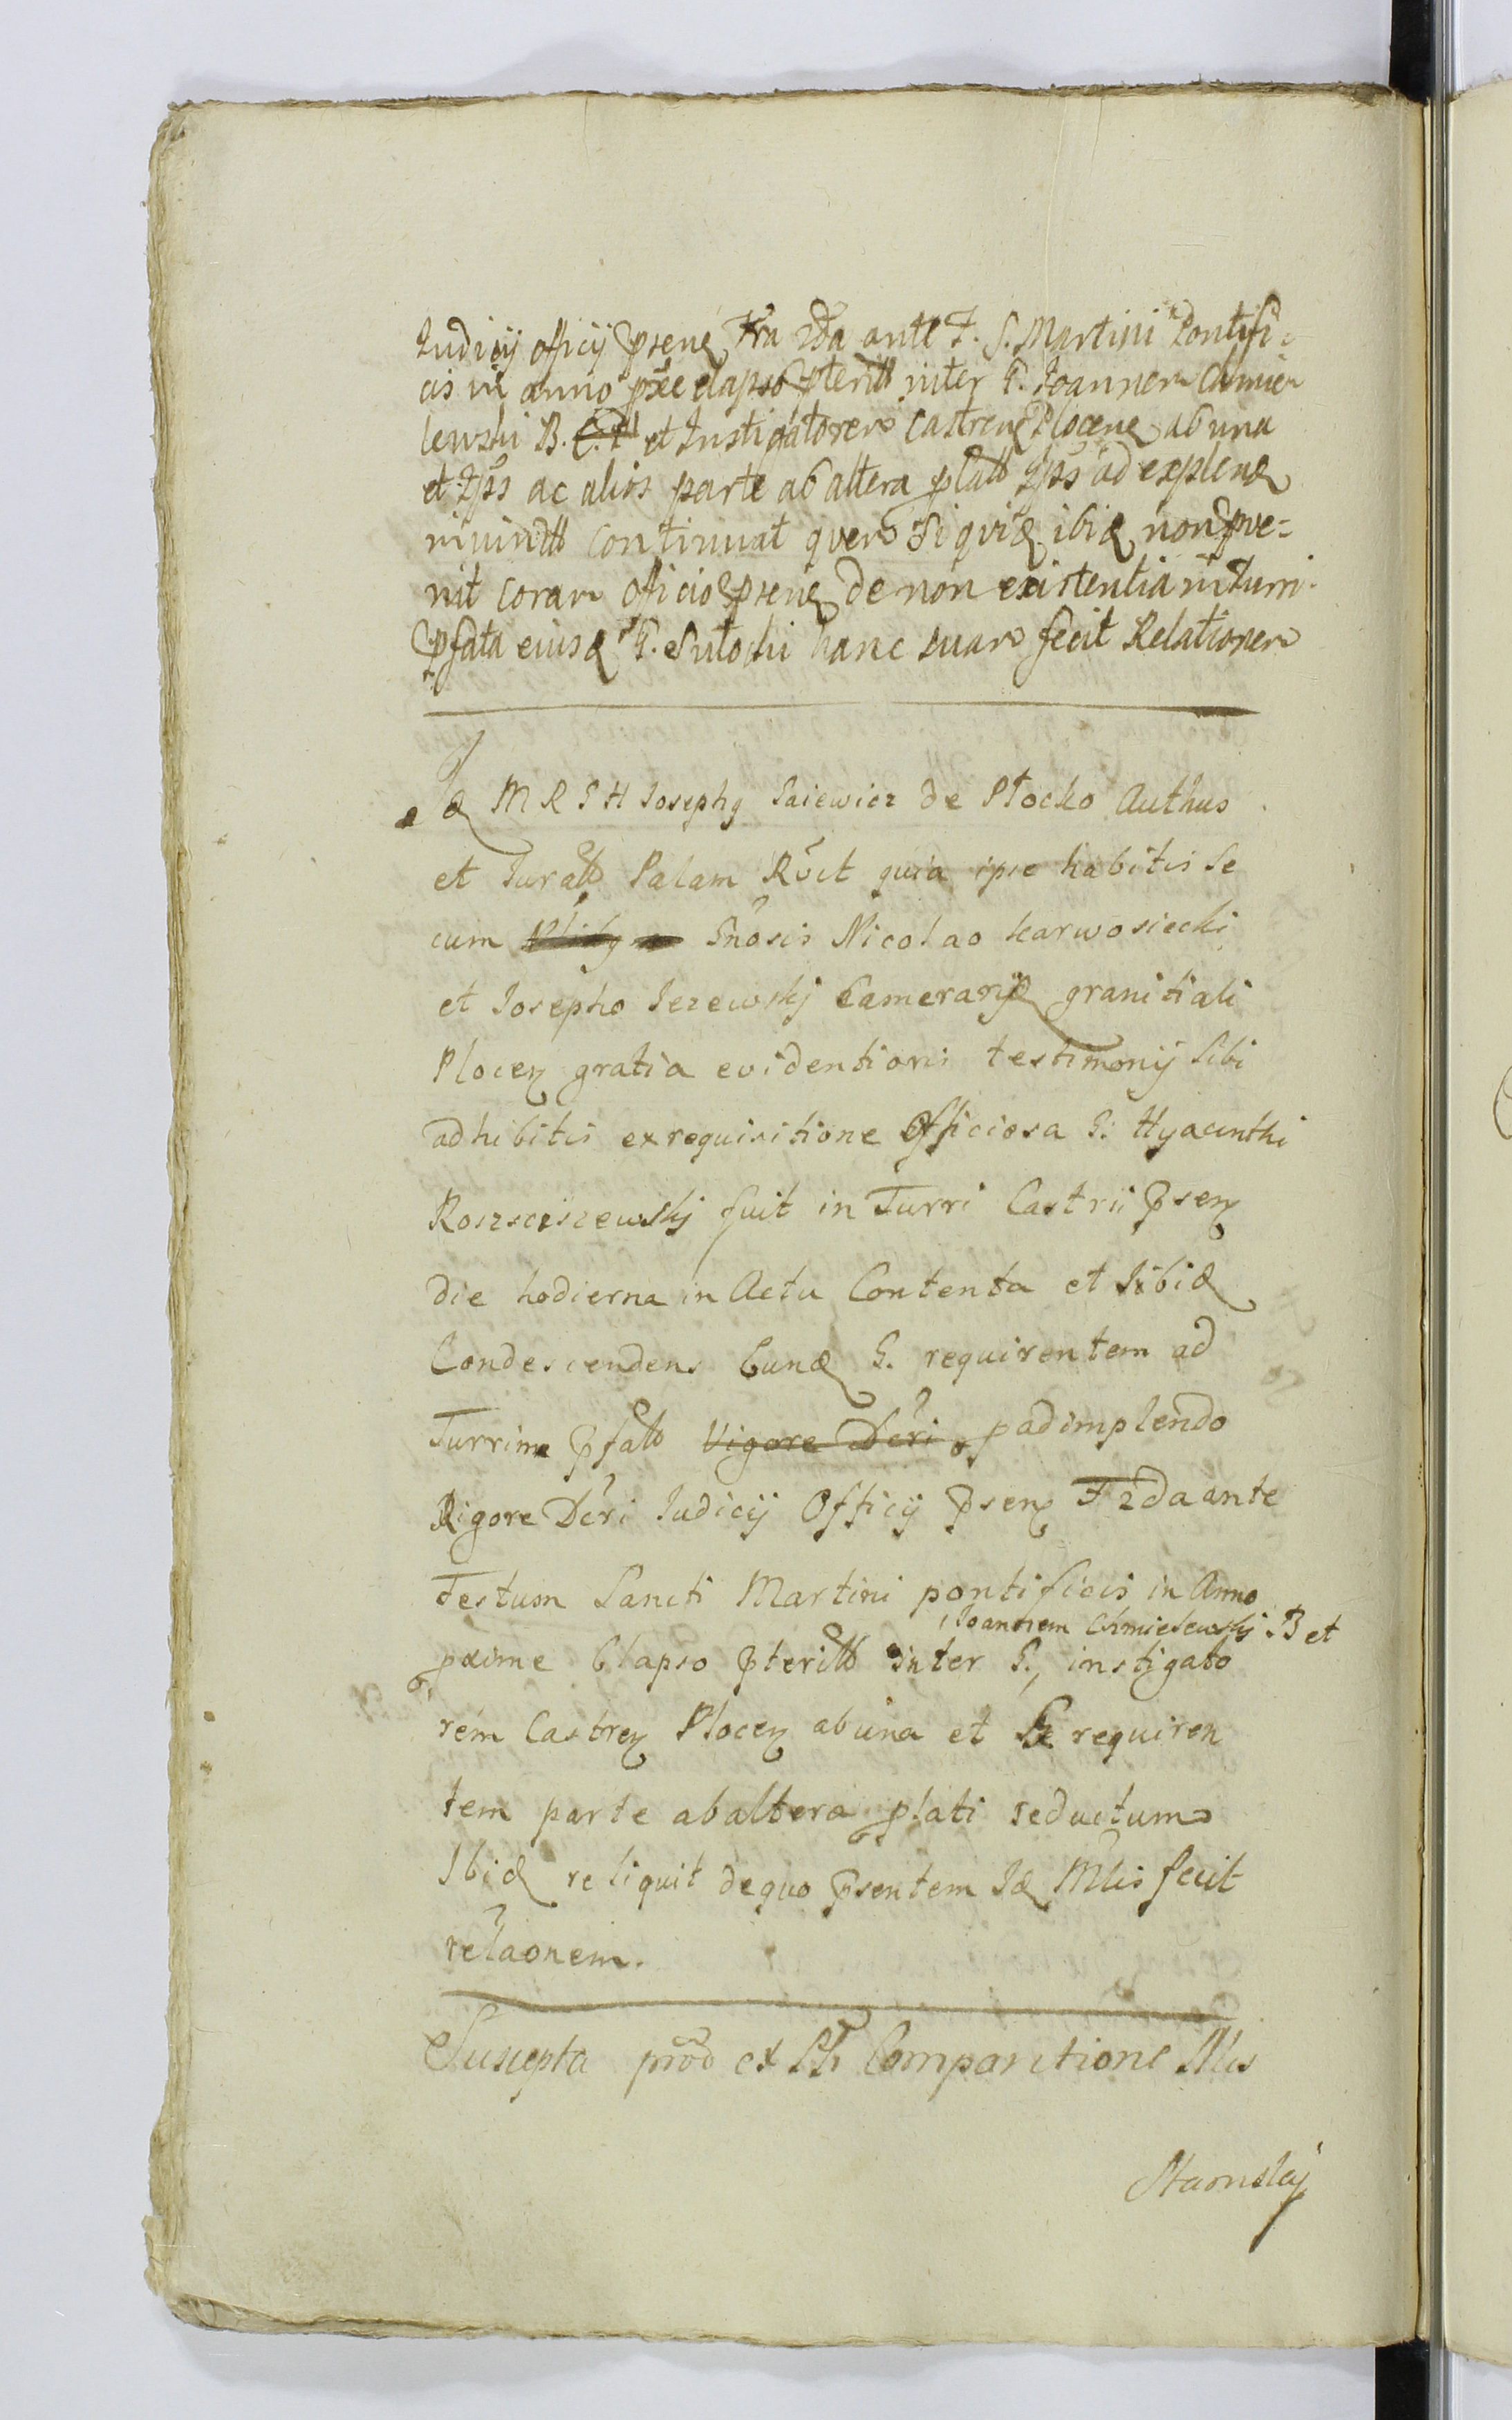 Judicij officij pseñ Fra 2da ante F. S. Martini Pontifi-
cis in anno pxe elapso pterito inter G. Joannem Chmie
lewski B. et Instigatorem Castreñ Ploceñ ab una
et Ipso ac alios parte ab altera plato Ipso ad explend
continuat quem siquid ibid non inve=
nit coram officio pseñ de non existentia in Turri
pfata eiusd G. Sutocki hanc suam fecit Relationem
Id M R G H Josephq Gaiewicz de Plocko Authus
et Juratus Palam Rcvit quia ipse habitis Se
cum Gnosis Nicolao Karwosiecki
et Josepho Jezewskj Camerarijs granitiali
Ploceñ gratia evidentioris testimonij Sibi
adhibitis ex requisitione Officiosa G. Hyacinthi
Roszsciszewskj fuit in Turri Castrii pseñ
die hodierna in Actu Contenta et ibid
Condescendens Eund G. requirentem ad
Turrim pfatam Vigore Dcri padimplendo
Rigore Dcri Judicij Officij pseñ F 2da ante
Festum Sancti Martini pontificis in Anno
Joannem Chmielewskj B et
pxime Elapso pterito inter G., instigato
rem Castreñ Ploceñ ab una et G. requiren
tem parte ab altera plati seductum
Ibid reliquit de quo psentem Id Mlis fecit
relaonem.
Suscepta prod ex Comparitione Mis
Stanislaj